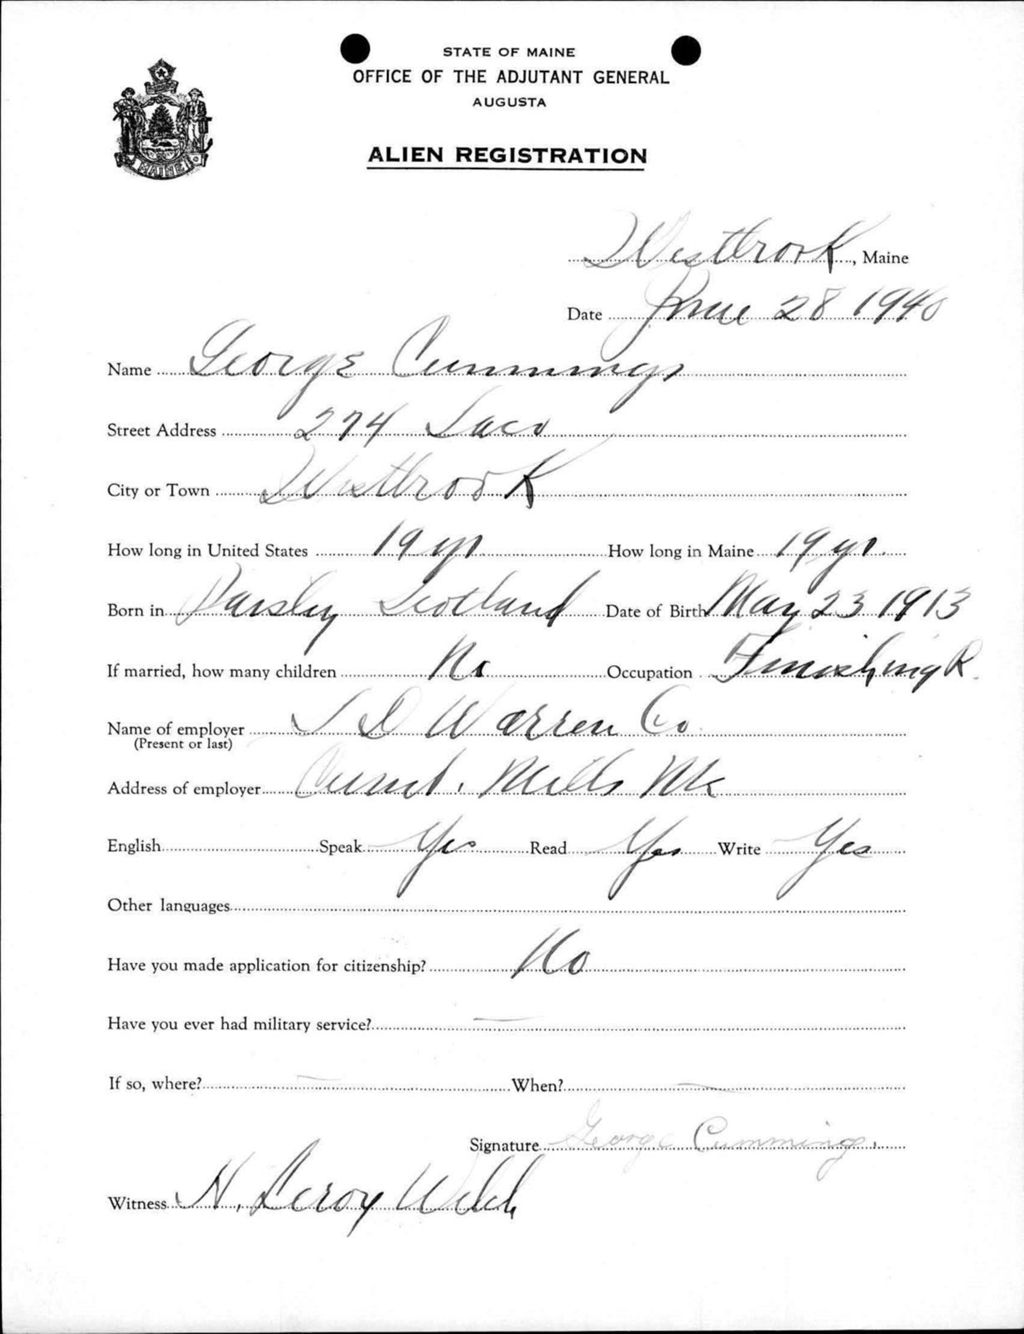 STATE OF MAINE
OFFICE OF THE ADJUTANT GENERAL
AUGUSTA
ALIEN REGISTRATION
MAINE
Westbrook, Maine
Date June 28 1940
Name George Cummings
Street Address 274 Saco
City or Town Westbrook
How long in United States 19 yr How long in Maine 19 yr.
Born in Paisley Scotland Date of Birth May 23 1913
If married, how many children No Occupation Finishing R.
Name of employer S D Warren Co.
(Present or last)
Address of employer Cumb. Mills Me
English Speak Yes Read Yes Write Yes
Other languages
Have you made application for citizenship? No
Have you ever had military service? —
If so, where? — When? —
Signature George Cummings.
Witness H. Leroy Welch